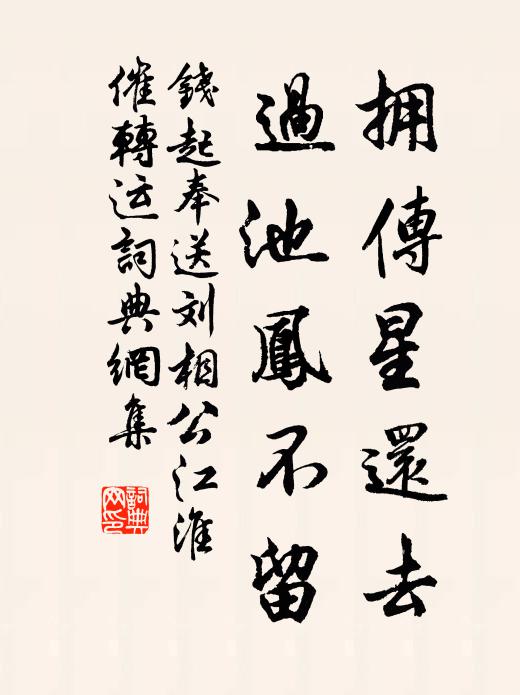 拥傳星還去
過池鳳不留
錢起奉送刘相公江淮
催轉运詞典網集
詞典
网印